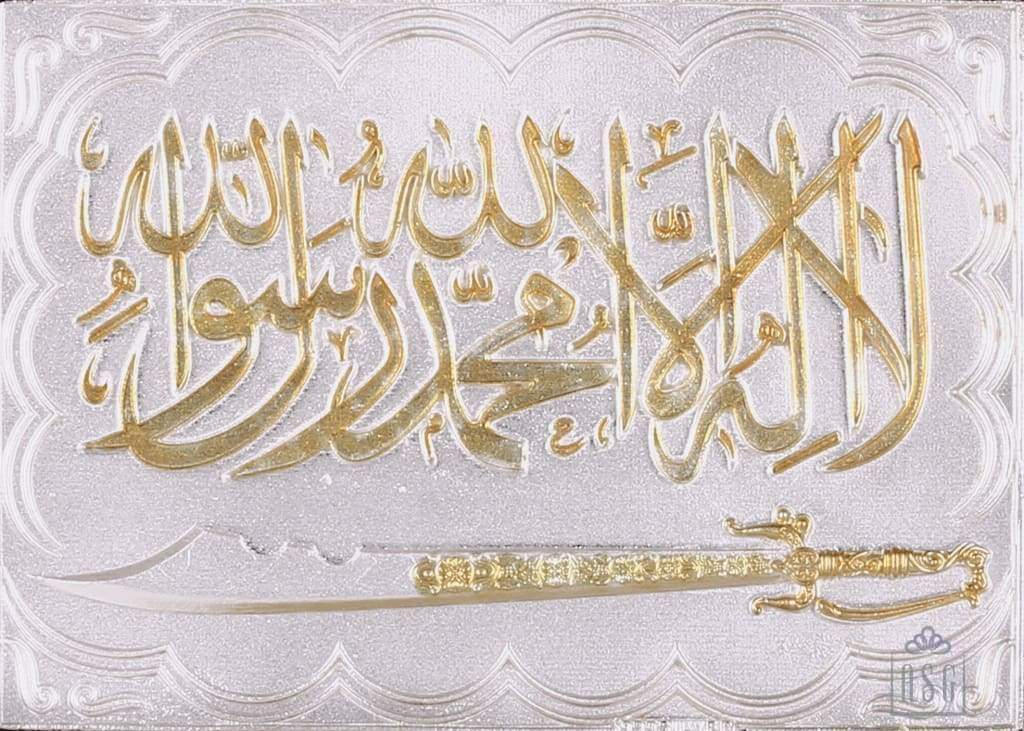 لا إله إلا الله محمد رسول الله
ASG